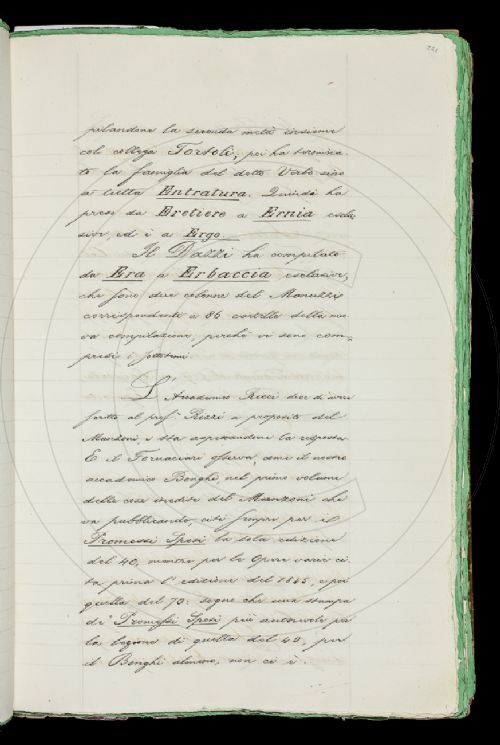 221
pilandone la seconda metà insieme
col collega Tortoli, poi ha termina-
to la famiglia del detto Verbo sino
a tutta Entratura. Quindi ha
preso da Eretiere a Ernia esclu-
sive, ed è a Ergo.
Il Dazzi ha compilato
da Era a Erbaccia esclusive,
che sono due colonne del Manuzzi
corrispondenti a 86 cartelle della nuo-
va compilazione, perché vi sono com-
presi i sottotemi.
L'Accademico Ricci dice d'aver
scritto al prof. Rezzi a proposito del
Manzoni, e sta aspettandone la risposta.
E il Fornaciari osserva, come il nostro
accademico Bonghi, nel primo volume
delle cose inedite del Manzoni che
va pubblicando, cita sempre per il
Promessi Sposi la sola edizione
del 40, mentre per le Opere varie ci-
ta prima l'edizione del 1845, e poi
quella del 70: segno che una stampa
de' Promessi Sposi più autorevole per
la lezione di quella del 40, per
il Bonghi almeno, non ci è.